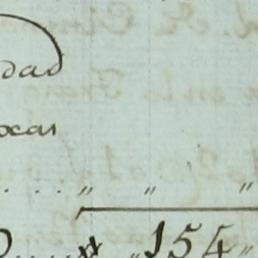 dad
ocas
.... " " "
..... " 154 "